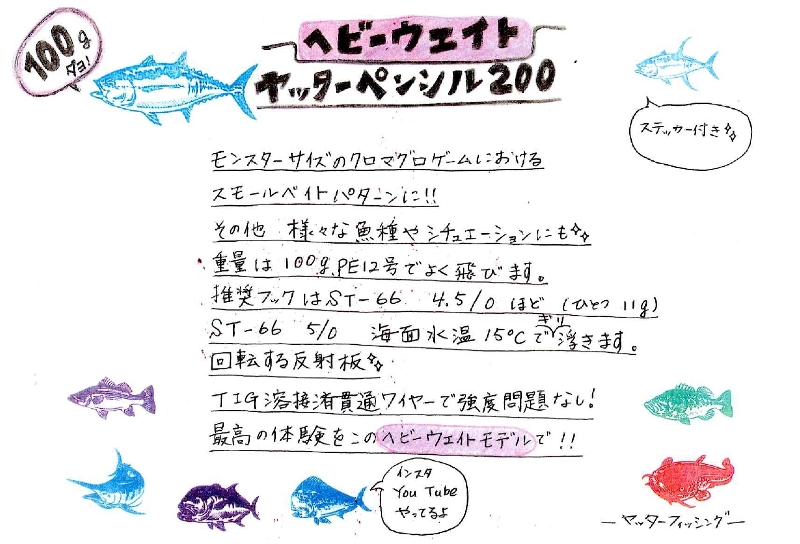 100g
ダヨ!
ヘビーウェイト
ヤッターペンシル200
ステッカー付き
モンスターサイズのクロマグロゲームにおける
スモールベイトパターンに!!
その他 様々な魚種やシチュエーションにも
重量は100g、PE12号でよく飛びます。
推奨フックはST-66 4.5/0 ほど (ひとつ 11g)
ギリ
ST-66 5/0 海面水温 15℃で浮きます。
回転する反射板
TIG溶接済貫通ワイヤーで強度問題なし!
最高の体験をこのヘビーウェイトモデルで!!
インスタ
You Tube
やってるよ
ーヤッターフィッシングー